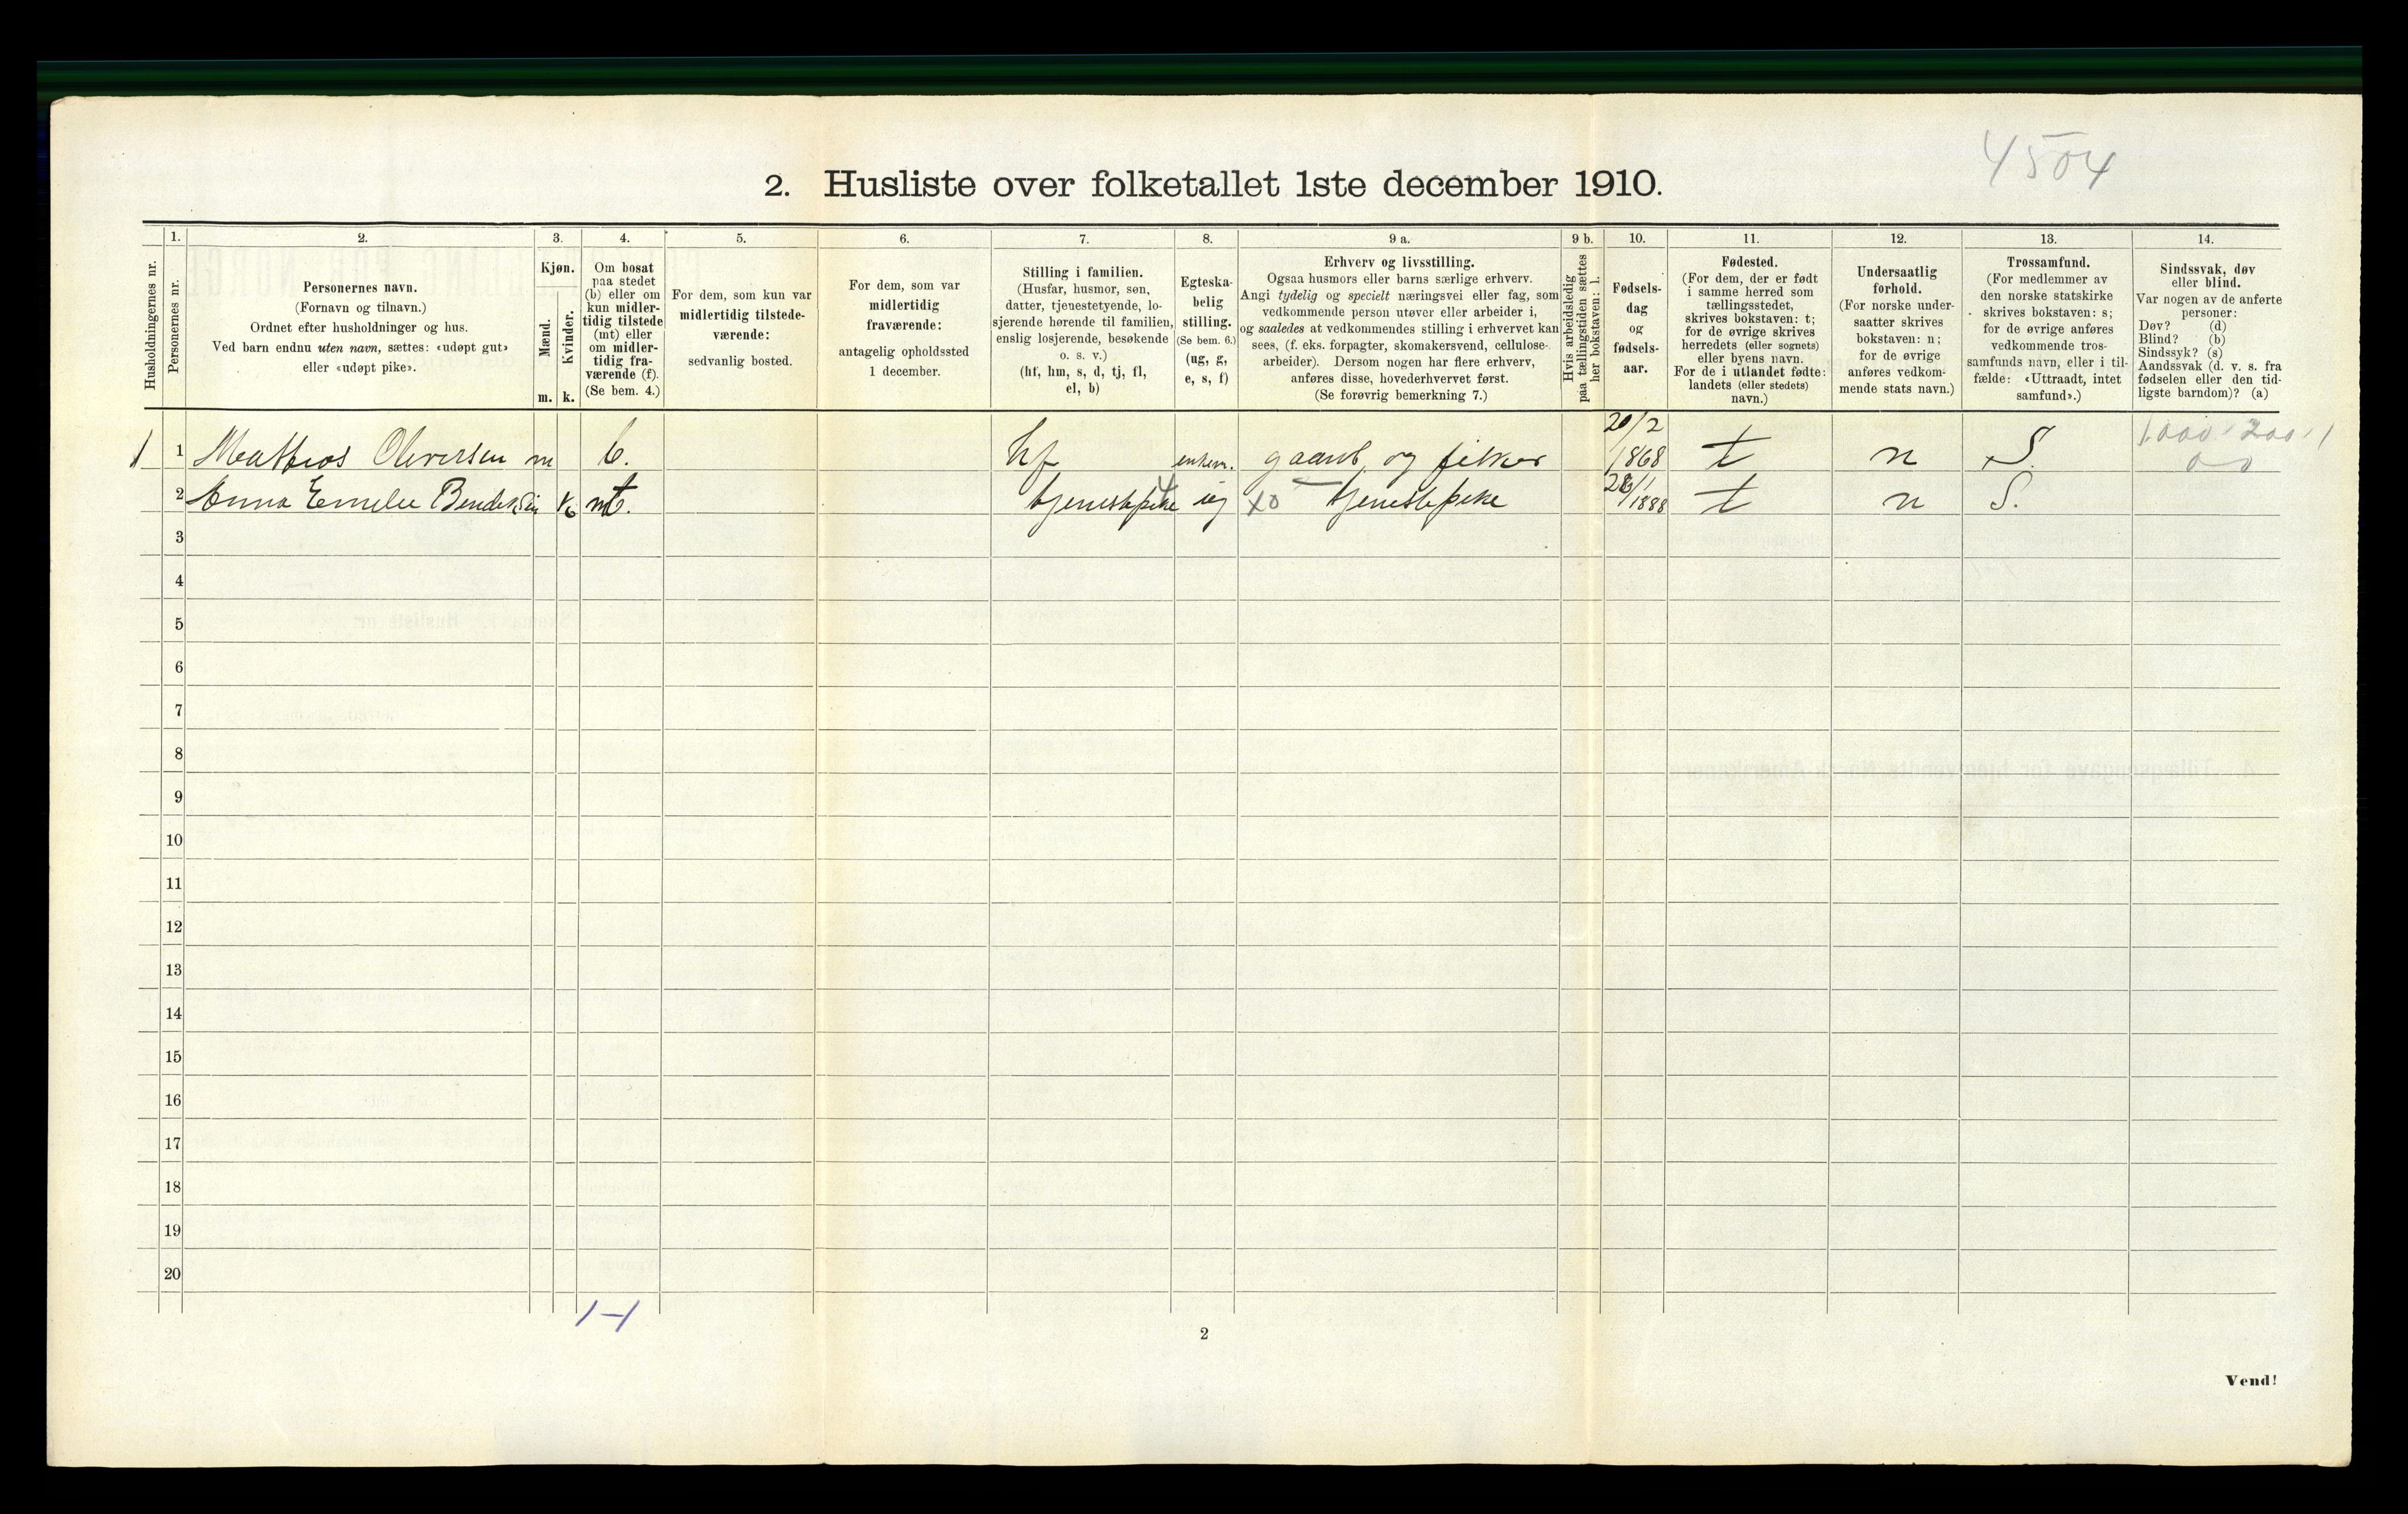 4504
2. Husliste over folketallet 1ste december 1910.
1. 2. 3. 4. 5. 6. 7. 8. 9 a. 9 b. 10. 11. 12. 13. 14.
Husholdningernes nr.
Personernes nr.
Personernes navn.
(Fornavn og tilnavn.)
Ordnet efter husholdninger og hus.
Ved barn endnu uten navn, sættes: «udøpt gut»
eller «udøpt pike».
Kjøn.
Mænd.
Kvinder.
m. k.
Om bosat
paa stedet
(b) eller om
kun midler-
tidig tilstede
(mt) eller
om midler-
tidig fra-
værende (f).
(Se bem. 4.)
For dem, som kun var
midlertidig tilstede-
værende:
sedvanlig bosted.
For dem, som var
midlertidig
fraværende:
antagelig opholdssted
1 december.
Stilling i familien.
(Husfar, husmor, søn,
datter, tjenestetyende, lo-
sjerende hørende til familien,
enslig losjerende, besøkende
o. s. v.)
(hf, hm, s, d, tj, fl,
el, b)
Egteska-
belig
stilling.
(Se bem. 6.)
(ug, g,
e, s, f)
Erhverv og livsstilling.
Ogsaa husmors eller barns særlige erhverv.
Angi tydelig og specielt næringsvei eller fag, som
vedkommende person utøver eller arbeider i,
og saaledes at vedkommendes stilling i erhvervet kan
sees, (f. eks. forpagter, skomakersvend, cellulose-
arbeider). Dersom nogen har flere erhverv,
anføres disse, hovederhvervet først.
(Se forøvrig bemerkning 7.)
Hvis arbeidsledig
paa tællingstiden sættes
her bokstaven: l.
Fødsels-
dag
og
fødsels-
aar.
Fødested.
(For dem, der er født
i samme herred som
tællingsstedet,
skrives bokstaven: t;
for de øvrige skrives
herredets (eller sognets)
eller byens navn.
For de i utlandet fødte:
landets (eller stedets)
navn.)
Undersaatlig
forhold.
(For norske under-
saatter skrives
bokstaven: n;
for de øvrige
anføres vedkom-
mende stats navn.)
Trossamfund.
(For medlemmer av
den norske statskirke
skrives bokstaven: s;
for de øvrige anføres
vedkommende tros-
samfunds navn, eller i til-
fælde: «Uttraadt, intet
samfund».)
Sindssvak, døv
eller blind.
Var nogen av de anførte
personer:
Døv? (d)
Blind? (b)
Sindssyk? (s)
Aandssvak (d. v. s. fra
fødselen eller den tid-
ligste barndom)? (a)
1 1 Mathias Oliversen m b. hf enkem. gaarb. og fisker 20/2 1868 t n S.
2 Anna Emelie Bendeksin k mt. tjenestepike ug tjenestepike 1888 t n S.
3
4
5
6
7
8
9
10
11
12
13
14
15
16
17
18
19
20
1-1
2
Vend!